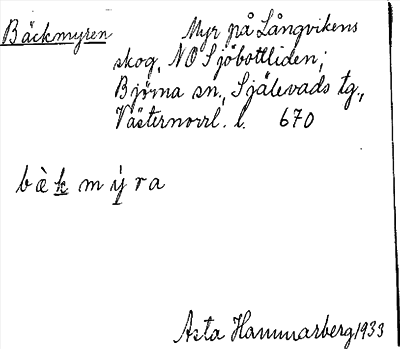 Bäckmyren Myr på Långvikens
skog, NO Sjöbottliden;
Björna sn., Själevads tg.,
Västernorrl. l. 670
bè k m ý r a
Asta Hammarberg 1933